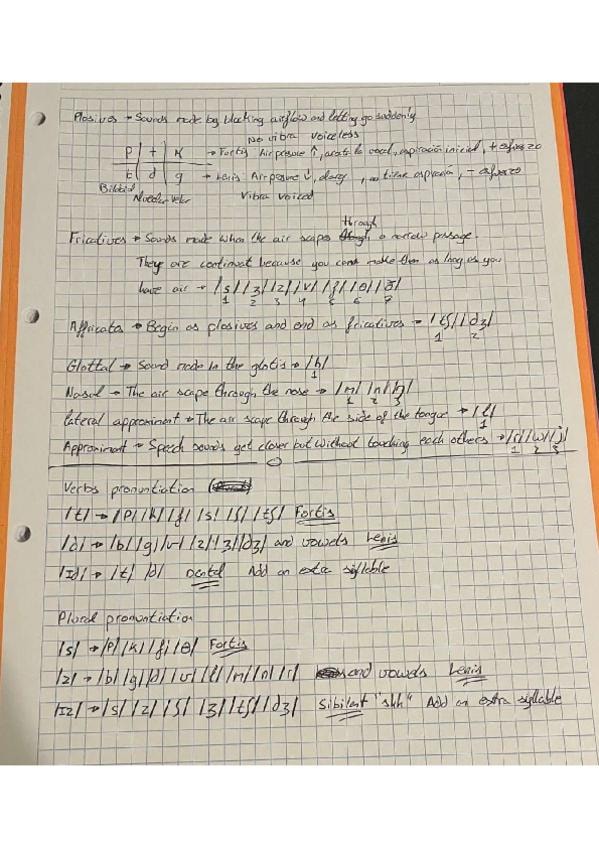 Plosives → Sounds made by blocking airflow and letting go suddenly
No vibra voiceless
P | t | K → Fortis Air pressure ↑, acorta la vocal, aspiración inicial, + esfuerzo
b | d | g → Lenis Air pressure ↓, alarg, no tiene aspiración, - esfuerzo
Bilabial Alveolar Velar Vibra Voiced
through
Fricatives → Sounds made when the air scapes a narrow passage.
They are continuant because you can make them as long as you
have air → /s/ /ʒ/ /z/ /v/ /f/ /θ/ /ð/
1 2 3 4 5 6 7
Affricates → Begin as plosives and end as fricatives → /tʃ/ /dʒ/
1 2
Glottal → Sound made in the glotis → /h/
1
Nasal → The air scape through the nose → /m/ /n/ /ŋ/
1 2 3
lateral approximant → The air scape through the side of the tongue → /l/
1
Approximant → Speech sounds get closer but without touching each others → /r/ /w/ /j/
1 2 3
Verbs pronuntiation
/t/ → /P/ /k/ /f/ /s/ /ʃ/ /tʃ/ Fortis
/d/ → /b/ /g/ /v/ /z/ /ʒ/ /dʒ/ and vowels Lenis
/Id/ → /t/ /d/ Dental Add an extra syllable
Plural pronuntiation
/s/ → /P/ /k/ /f/ /θ/ Fortis
/z/ → /b/ /g/ /d/ /v/ /l/ /m/ /n/ /r/ and vowels Lenis
/Iz/ → /s/ /z/ /ʃ/ /ʒ/ /tʃ/ /dʒ/ Sibilant "shh" Add an extra syllable